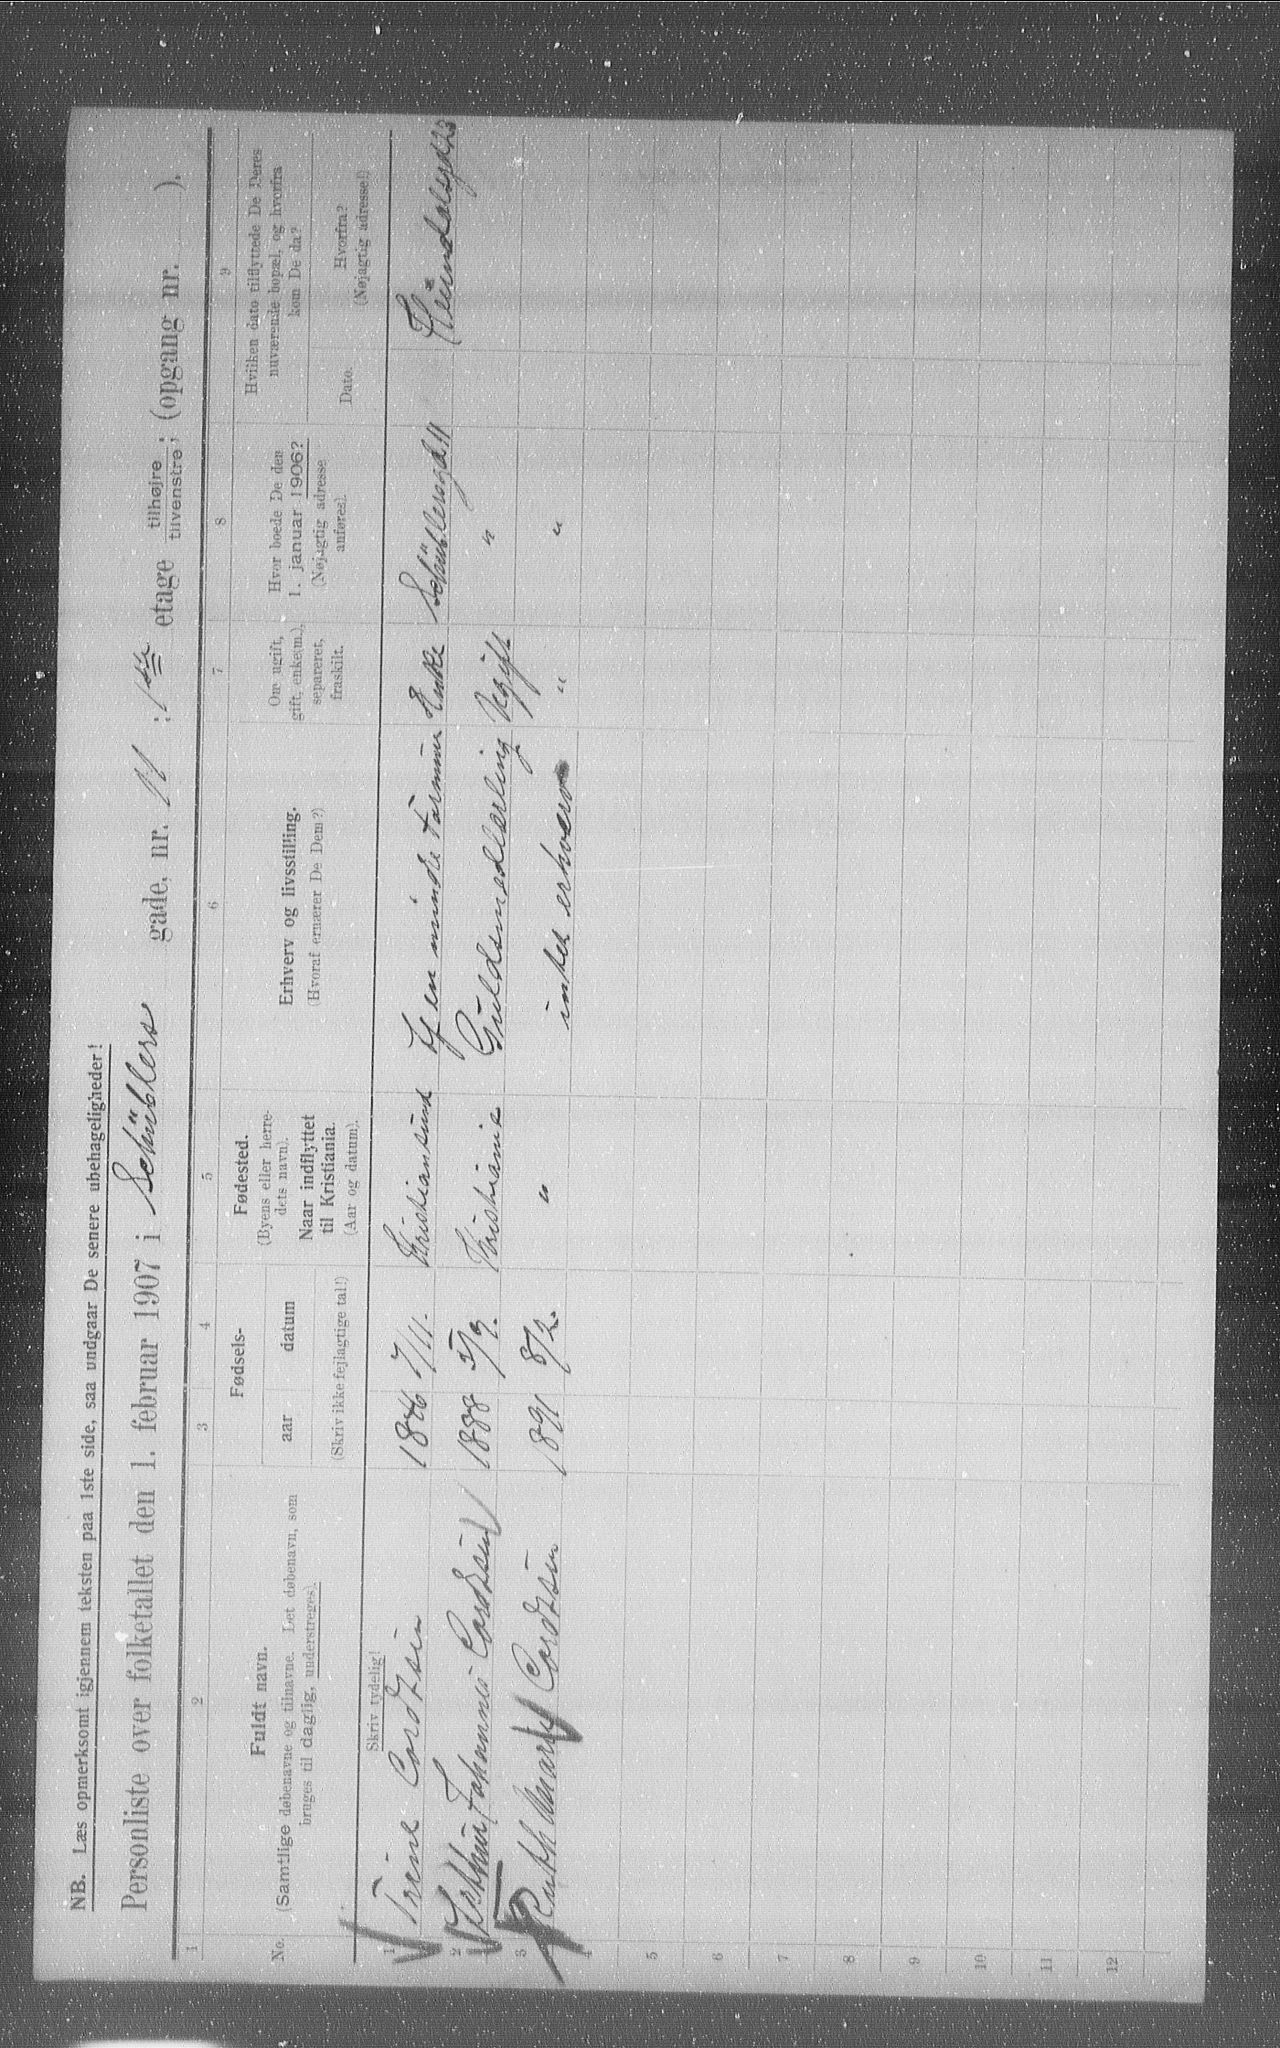 NB. Læs opmerksomt igjennem teksten paa 1ste side, saa undgaar De senere ubehageligheder!
Personliste over folketallet den 1. februar 1907 i Schüblers gade, nr. 11 : 1ste etage tilhøjre tilvenstre ; (opgang nr. ).
1 2 3 4 5 6 7 8 9
No.
Fuldt navn.
(Samtlige døbenavne og tilnavne. Let døbenavn, som
bruges til daglig, understreges).
Fødsels-
aar datum
Fødested.
(Byens eller herre-
dets navn).
Naar indflyttet
til Kristiania.
(Aar og datum).
Erhverv og livsstilling.
(Hvoraf ernærer De Dem?)
Om ugift,
gift, enke(m.),
separeret,
fraskilt.
Hvor boede De den
1. januar 1906?
(Nøjagtig adresse
anføres).
Hvilken dato tilflyttede De Deres
nuværende bopæl, og hvorfra
kom De da?
Dato.
Hvorfra?
(Nøjagtig adresse!)
Skriv tydelig!
(Skriv ikke fejlagtige tal!)
1 Trine Cordtsen 7/11. Kristiansund Enke Schüblersgd. 11
2 Johannes Cordtsen 1888 Kristiania Guldsmedlærling Ugift "
3 Ruth Marie Cordtsen 1891 8/2. " intet erhverv " "
4
5
6
7
8
9
10
11
12